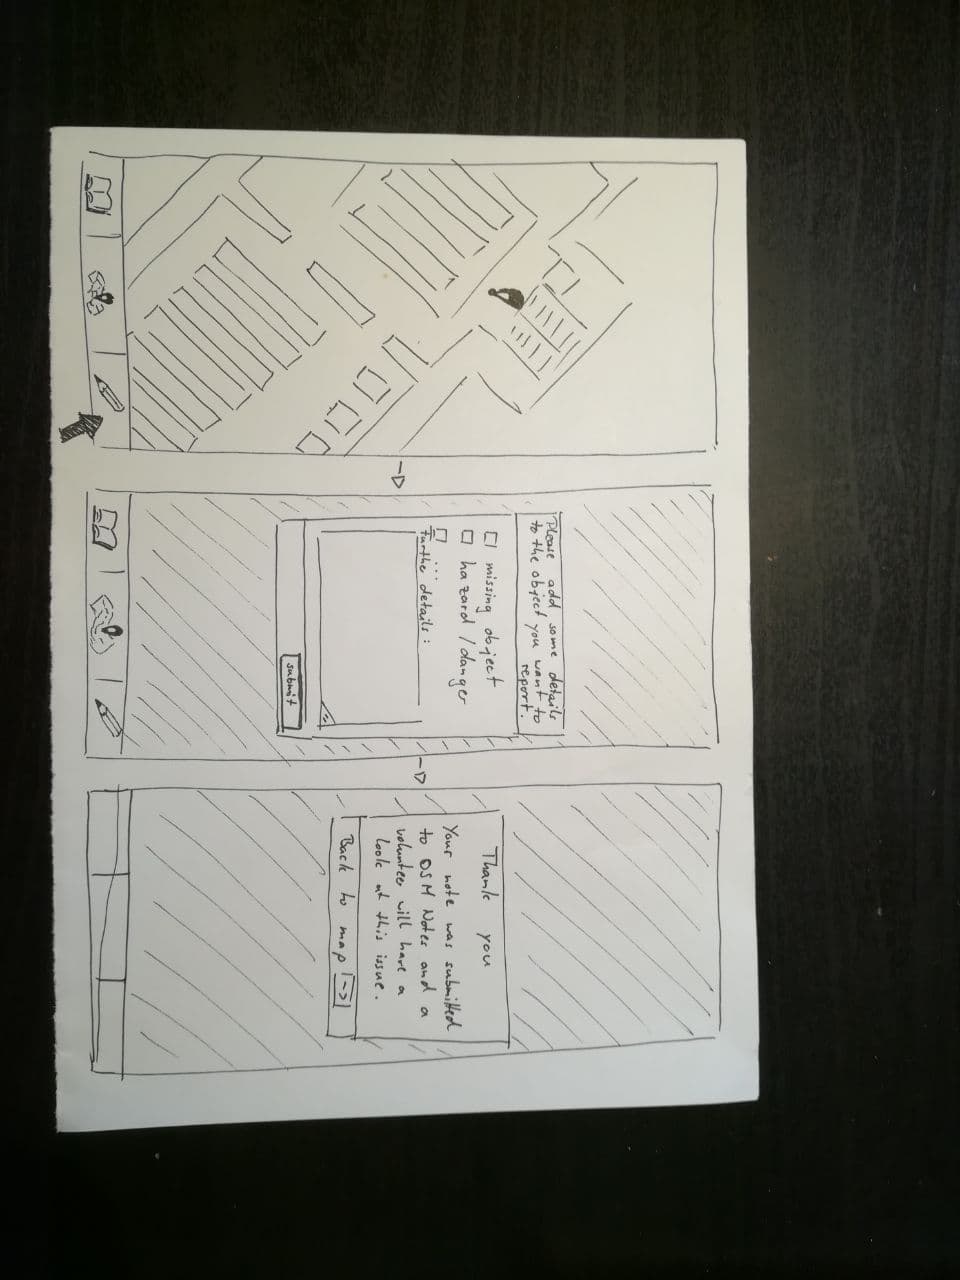 Please add some details
to the object you want to
report.
missing object
hazard / danger
...
furthe details:
submit
Thank you
Your note was submitted
to OSM Notes and a
volunteer will have a
look at this issue.
Back to map |->|